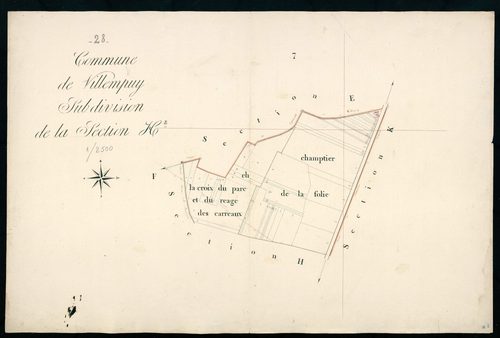 28.
Commune
de Villempuy
Subdivision
de la Section H²
1/2500
7
Section E
Section K
champtier
de la folie
ch
la croix du parc
et du reage
des carreaux
F
Section H